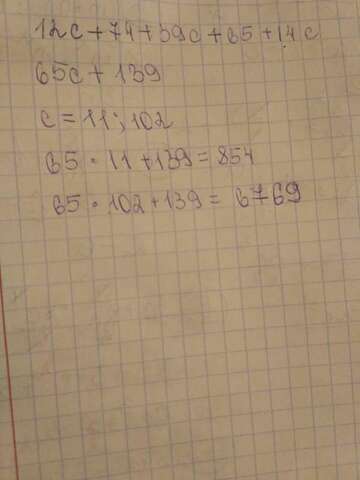 12c+74+39c+65+14c
65c+139
c=11;102
65·11+139=854
65·102+139= 6769